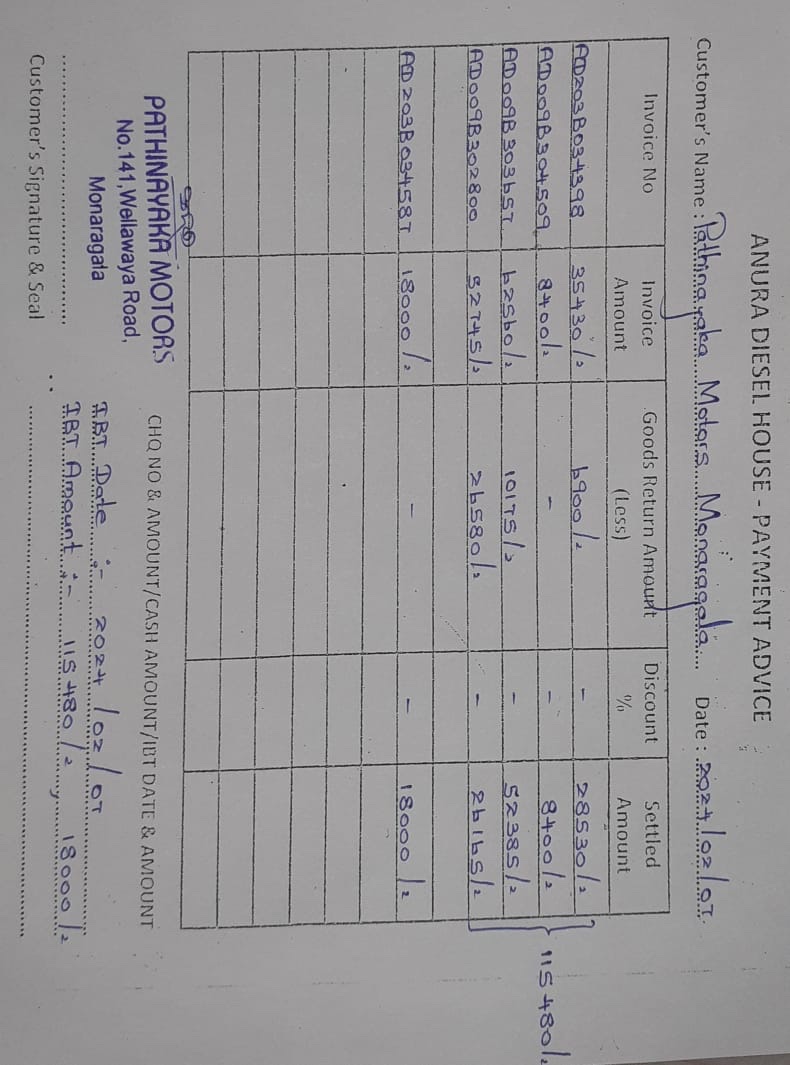 ANURA DIESEL HOUSE - PAYMENT ADVICE
Customer's Name : Pathinayaka Motors Monaragala... Date : 2024/02/07.
Invoice No Invoice Amount Goods Return Amount (Less) Discount % Settled Amount
AD203B034398 35430/= 6900/= - 28530/=
AD009B304509 8400/= - - 8400/=
AD009B303657 62560/= 10175/= - 52385/=
AD009B302800 52745/= 26580/= - 26165/=
115480/=
AD203B034587 18000/= - - 18000/=
PATHINAYAKA MOTORS
No.141, Wellawaya Road,
Monaragala
CHQ NO & AMOUNT/CASH AMOUNT/IBT DATE & AMOUNT
IBT Date :- 2024/02/07
IBT Amount :- 115480/= , 18000/=
Customer's Signature & Seal